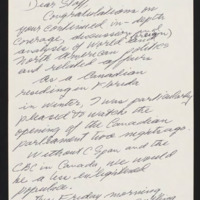 Dear Staff
Congratulations on
your continued in-depth
coverage, discussion &
analysis of world (foreign)
North American politics
and related affairs
As a Canadian
residing in Florida
in winter, I was particularly
pleased to watch the
opening of the Canadian
parliament two
Without C Span and the
CBC in Canada, we would
be a less enlightened
populace.
Friday morning